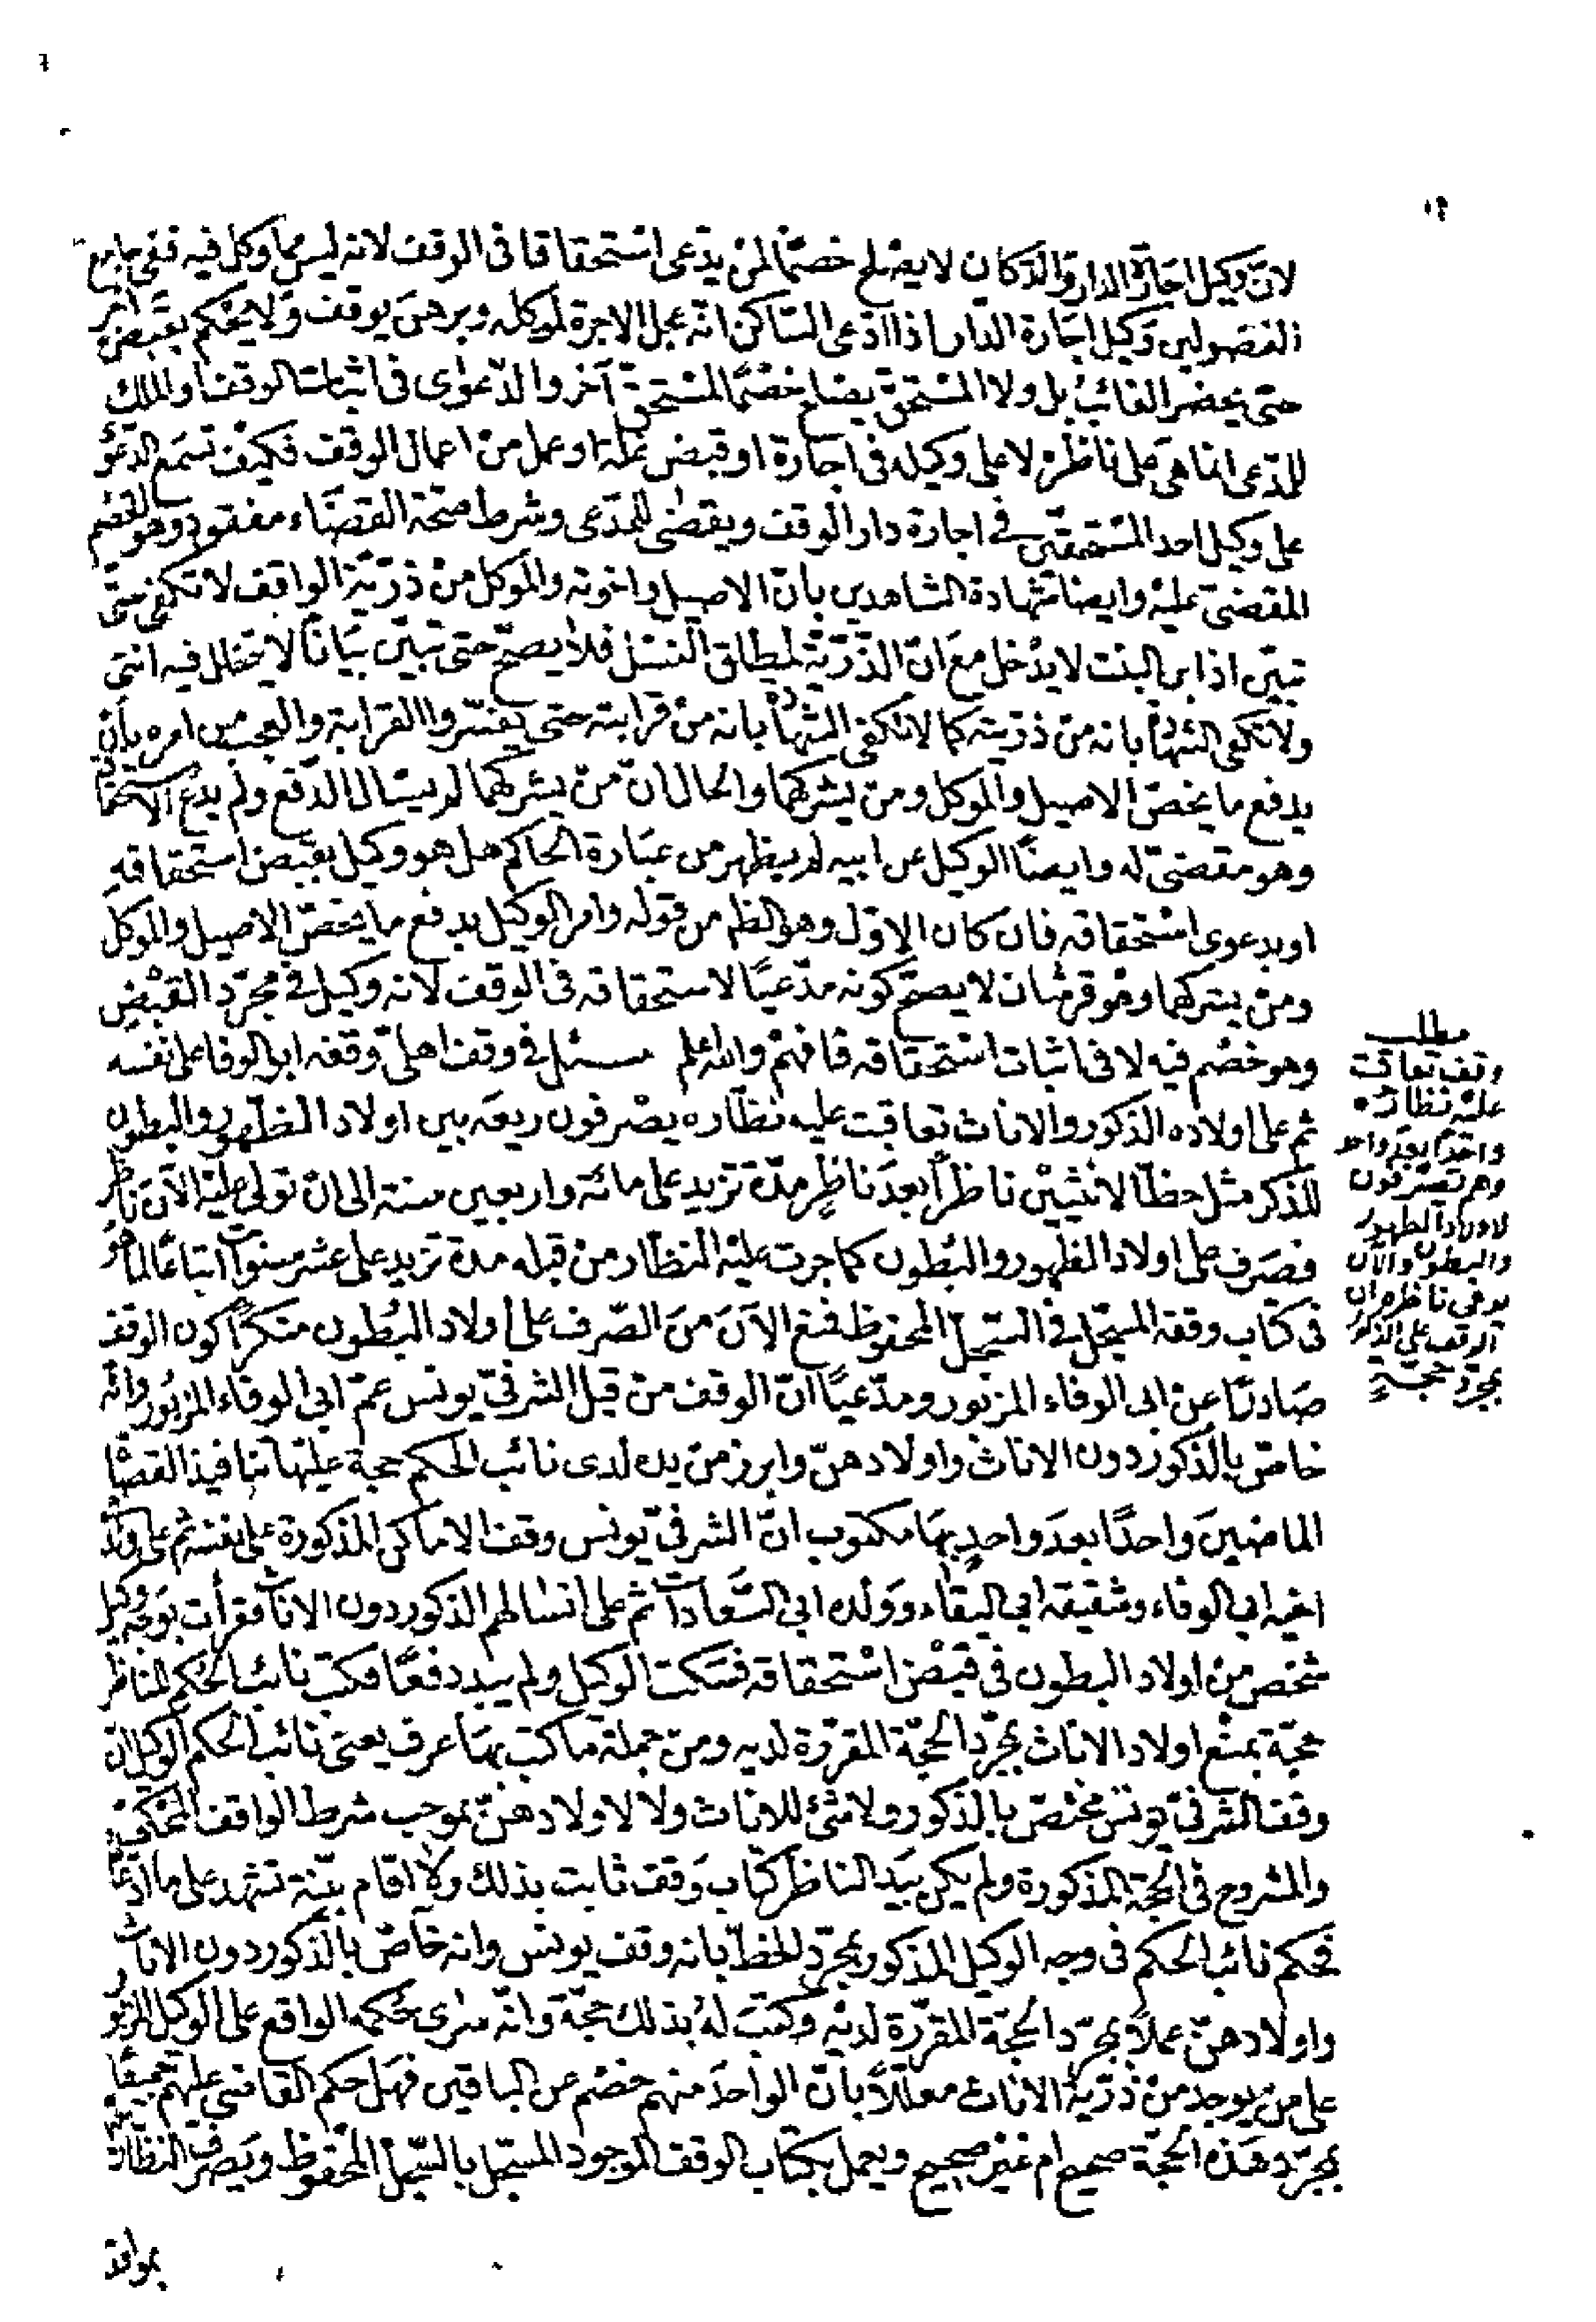 لان وكيل اجارة الدار والدكان لا يصلح خصما لمن يدعى استحقاقا فى الوقف لانه ليس مما وكل فيه ففى جامع
الفصولين وكيل اجارة الدار اذا ادعى الساكن انه عجل الاجرة لموكله وبرهن يوقف ولا يحكم بقبض
حتى يحضر الغائب بل ولا المستحق يصلح خصما لمستحق آخر والدعوى فى اثبات الوقف او الملك
للمدعى انما هى على ناظره لا على وكيله فى اجارة او قبض غلة او عمل من اعمال الوقف فكيف تسمع الدعوى
على وكيل احد المستحقين فى اجارة دار الوقف ويقضى للمدعى وشرط صحة القضاء مفقود وهو الخصم
المقضى عليه وايضا شهادة الشاهدين بان الاصيل واخوته والموكل من ذرية الواقف لا تكفى حتى
تبين اذ ابن البنت لا يدخل مع ان الذرية لمطلق النسل فلا يصح حتى تبين بيانا لا يتخلل فيه انثى
ولا تكفى الشهادة بانه من ذريته كما لا تكفى الشهادة بانه من قرابته حتى يفسروا القرابة والعجب من امره بان
يدفع ما يخص الاصيل والموكل ومن يشركهما والحال ان من يشركهما لم يسال الدفع ولم يدع الاستحقاق
وهو مقضى له وايضا الوكيل عن ابيه لم يظهر من عبارة الحاكم هل هو وكيل بقبض استحقاقه
او بدعوى استحقاقه فان كان الاول وهو الظم من قوله وامر الوكيل بدفع ما يخص الاصيل والموكل
ومن يشركهما وهو قرشان لا يصح كونه مدعيا لاستحقاقه فى الوقف لانه وكيل فى مجرد القبض
وهو خصم فيه لا فى اثبات استحقاقه فافهم والله اعلم سئل فى وقف اهلى وقفه ابو الوفا على نفسه
ثم على اولاده الذكور والاناث تعاقبت عليه نظاره يصرفون ريعه بين اولاد الظهور والبطون
للذكر مثل حظ الانثيين ناظرا بعد ناظر مدة تزيد على مائة واربعين سنة الى ان تولى عليه الآن ناظر
فصرف على اولاد الظهور والبطون كما جرت عليه النظار من قبله مدة تزيد على عشر سنوات اتباعا لما هو
فى كتاب وقفه المسجل فى السجل المحفوظ فمنع الآن من الصرف على اولاد البطون منكرا كون الوقف
صادرا عن ابى الوفاء المزبور ومدعيا ان الوقف من قبل الشرفى يونس عم ابى الوفاء المزبور وانه
خاص بالذكور دون الاناث واولادهن وابرز من يده لدى نائب الحكم حجة عليها تنافيذ القضاة
الماضين واحدا بعد واحد بها مكتوب ان الشرفى يونس وقف الاماكن المذكورة على نفسه ثم على ولد
اخيه ابى الوفاء وشقيقه ابى البقاء وولده ابى السعادات ثم على انسالهم الذكور دون الاناث فقرأت بوجه وكيل
شخص من اولاد البطون فى قبض استحقاقه فسكت الوكيل ولم يبد دفعا فكتب نائب الحكم للناظر
حجة بمنع اولاد الاناث بمجرد الحجة المقررة لديه ومن جملة ما كتب بها عرف يعنى نائب الحكم الوكيل ان
وقف الشرفى يونس مختص بالذكور ولا شئ للاناث ولا لاولادهن بموجب شرط الواقف المحكى
والمشروح فى الحجة المذكورة ولم يكن بيد الناظر كتاب وقف ثابت بذلك ولا اقام بينة تشهد على ما ادعاه
فحكم نائب الحكم فى وجه الوكيل المذكور بمجرد الخط بانه وقف يونس وانه خاص بالذكور دون الاناث
واولادهن عملا بمجرد الحجة المقررة لديه وكتب له بذلك حجة وانه سرى حكمه الواقع على الوكيل المزبور
على من يوجد من ذرية الاناث معللا بان الواحد منهم خصم عن الباقين فهل حكم القاضى عليهم جميعا
بمجرد هذه الحجة صحيح ام غير صحيح ويعمل بكتاب الوقف الموجود المسجل بالسجل المحفوظ ويصرف النظار
مطلب
وقف تعاقبت
عليه نظاره
واحدا بعد واحد
وهم يصرفون
لاولاد الظهور
والبطون والآن
يدعى ناظره ان
الوقف على الذكور
بمجرد حجة